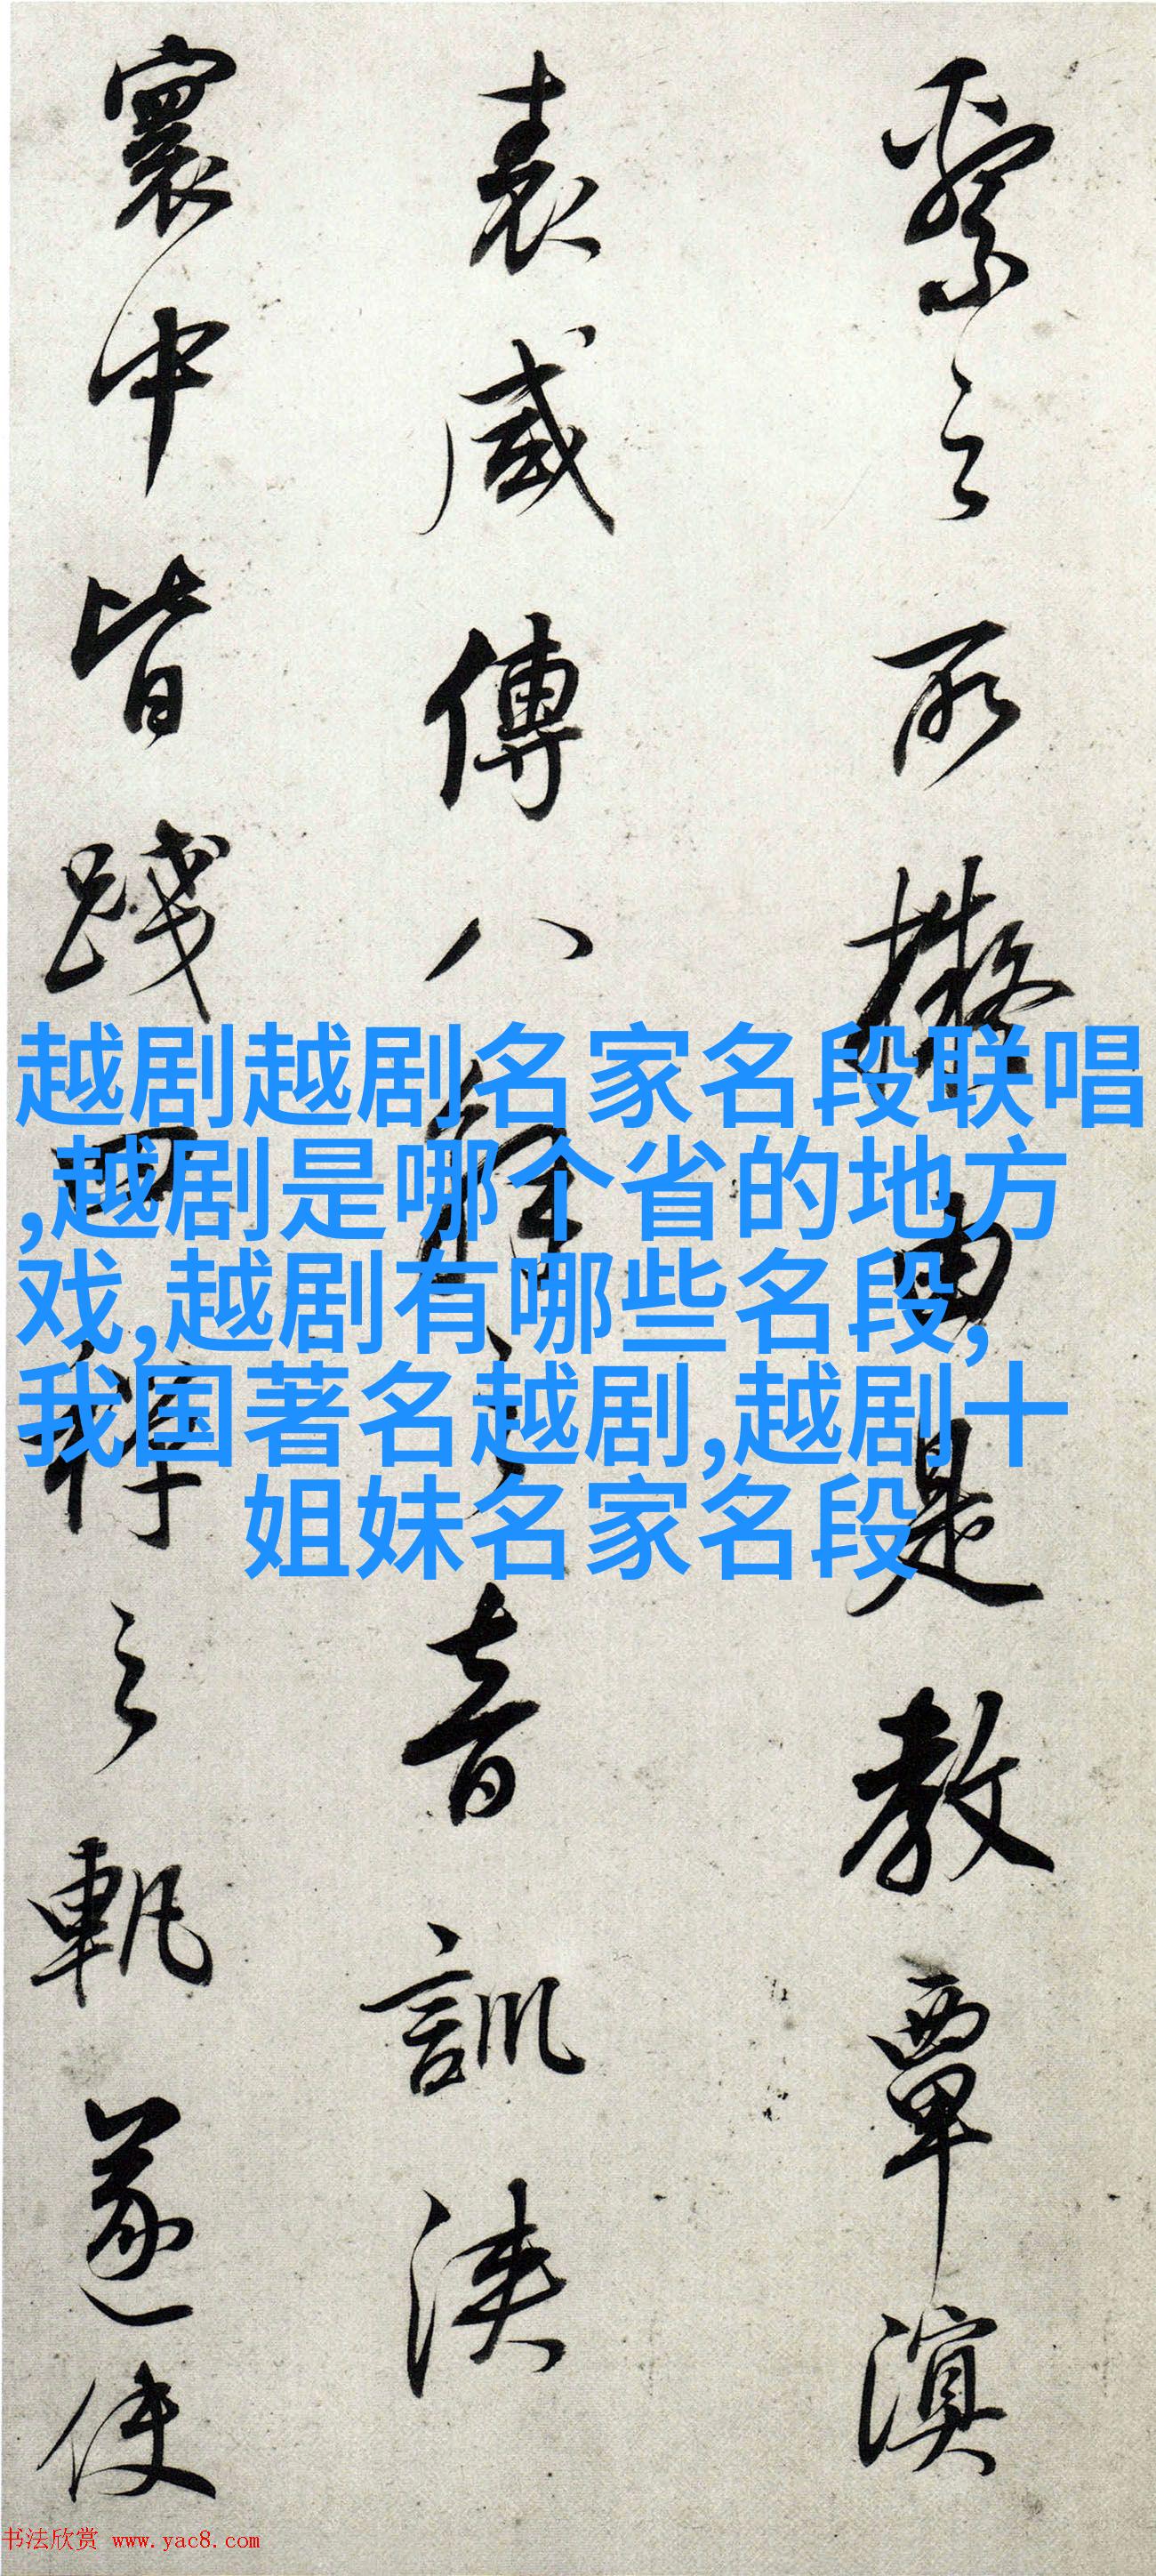 繫之所擬由是教覃溟
表咸傳八解之音訓浹
寰中皆踐四禪之軌遂使
越剧越剧名家名段联唱
,越剧是哪个省的地方
戏,越剧有哪些名段,
我国著名越剧,越剧十
姐妹名家名段
书法欣赏 www.yac8.com